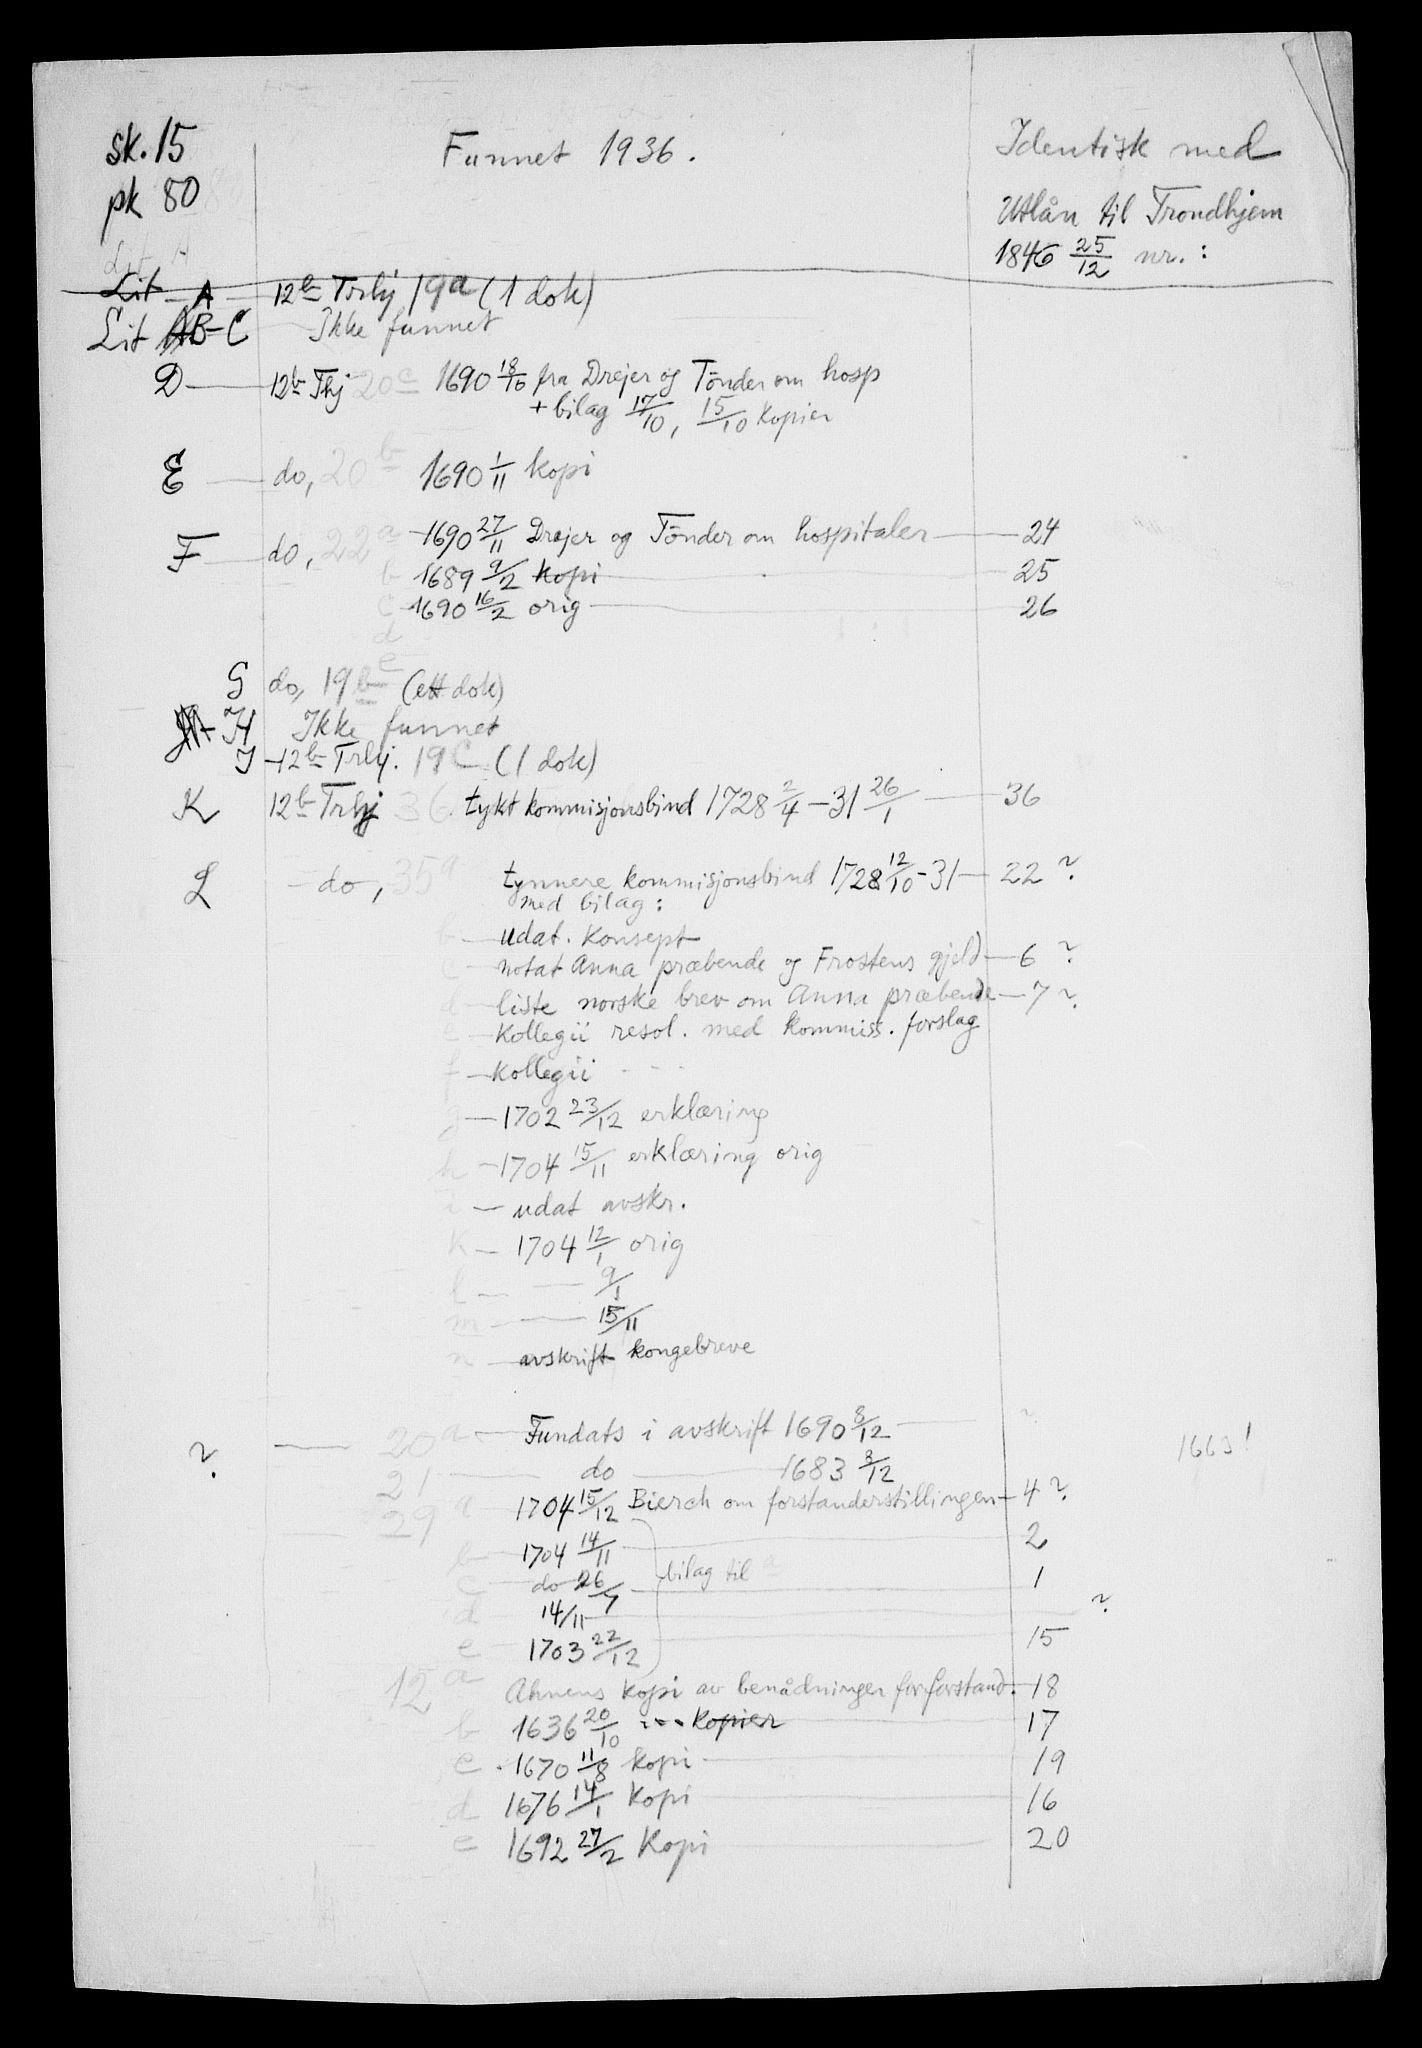 sk. 15
pk 80
Funnet 1936.
Identisk med
Utlån til Trondhjem
1846 25/12 nr. :
Lit A 12b Trhj 19a (1 dok)
Lit B-C Ikke funnet
D 12b Thj 20c 1690 18/10 fra Drejer og Tönder om hosp
+ bilag 17/10, 15/10 kopier
E do, 20b 1690 1/11 kopi
F do, 22a 1690 27/11 Drejer og Tönder om hospitaler 24
b 1689 9/2 kopi 25
c 1690 16/2 orig 26
d
e
G do, 19b (ett dok)
H Ikke funnet
J 12b Trhj. 19c (1 dok)
K 12b Trhj 36 tykt kommisjonsbind 1728 2/4 - 31 26/1 36
L do, 35a tynnere kommisjonsbind 1728 12/10 - 31 22 ?
med bilag :
b udat. konsept
c notat Anna præbende og Frostens gjeld 6 ?
d liste norske brev om Anna præbende 7 ?
e Kollegii resol. med kommiss. forslag
f Kollegii - - -
g 1702 23/12 erklæring
h 1704 15/11 erklæring orig
i udat avskr.
k 1704 12/1 orig
l — 9/1
m — 15/11
n avskrift kongebreve
? 20a Fundats i avskrift 1690 8/12 ? 1663!
21 do 1683 8/12
29a 1704 15/12 Bierch om forstanderstillingen 4 ?
b 1704 14/11 2
c do 26/7 bilag til a 1
d 14/11 ?
e 1703 22/12 15
12a Ahnens kopi av benådninger for forstand. 18
b 1636 20/10 --- kopier 17
c 1670 11/8 kopi 19
d 1676 14/1 kopi 16
e 1692 27/2 Kopi 20